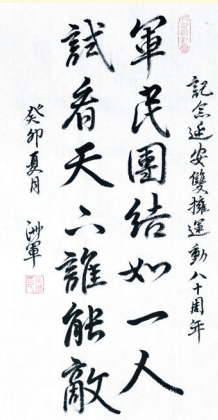 記念延安雙擁運動八十周年
軍民團結如一人
試看天下誰能敵
癸卯夏月 洲軍